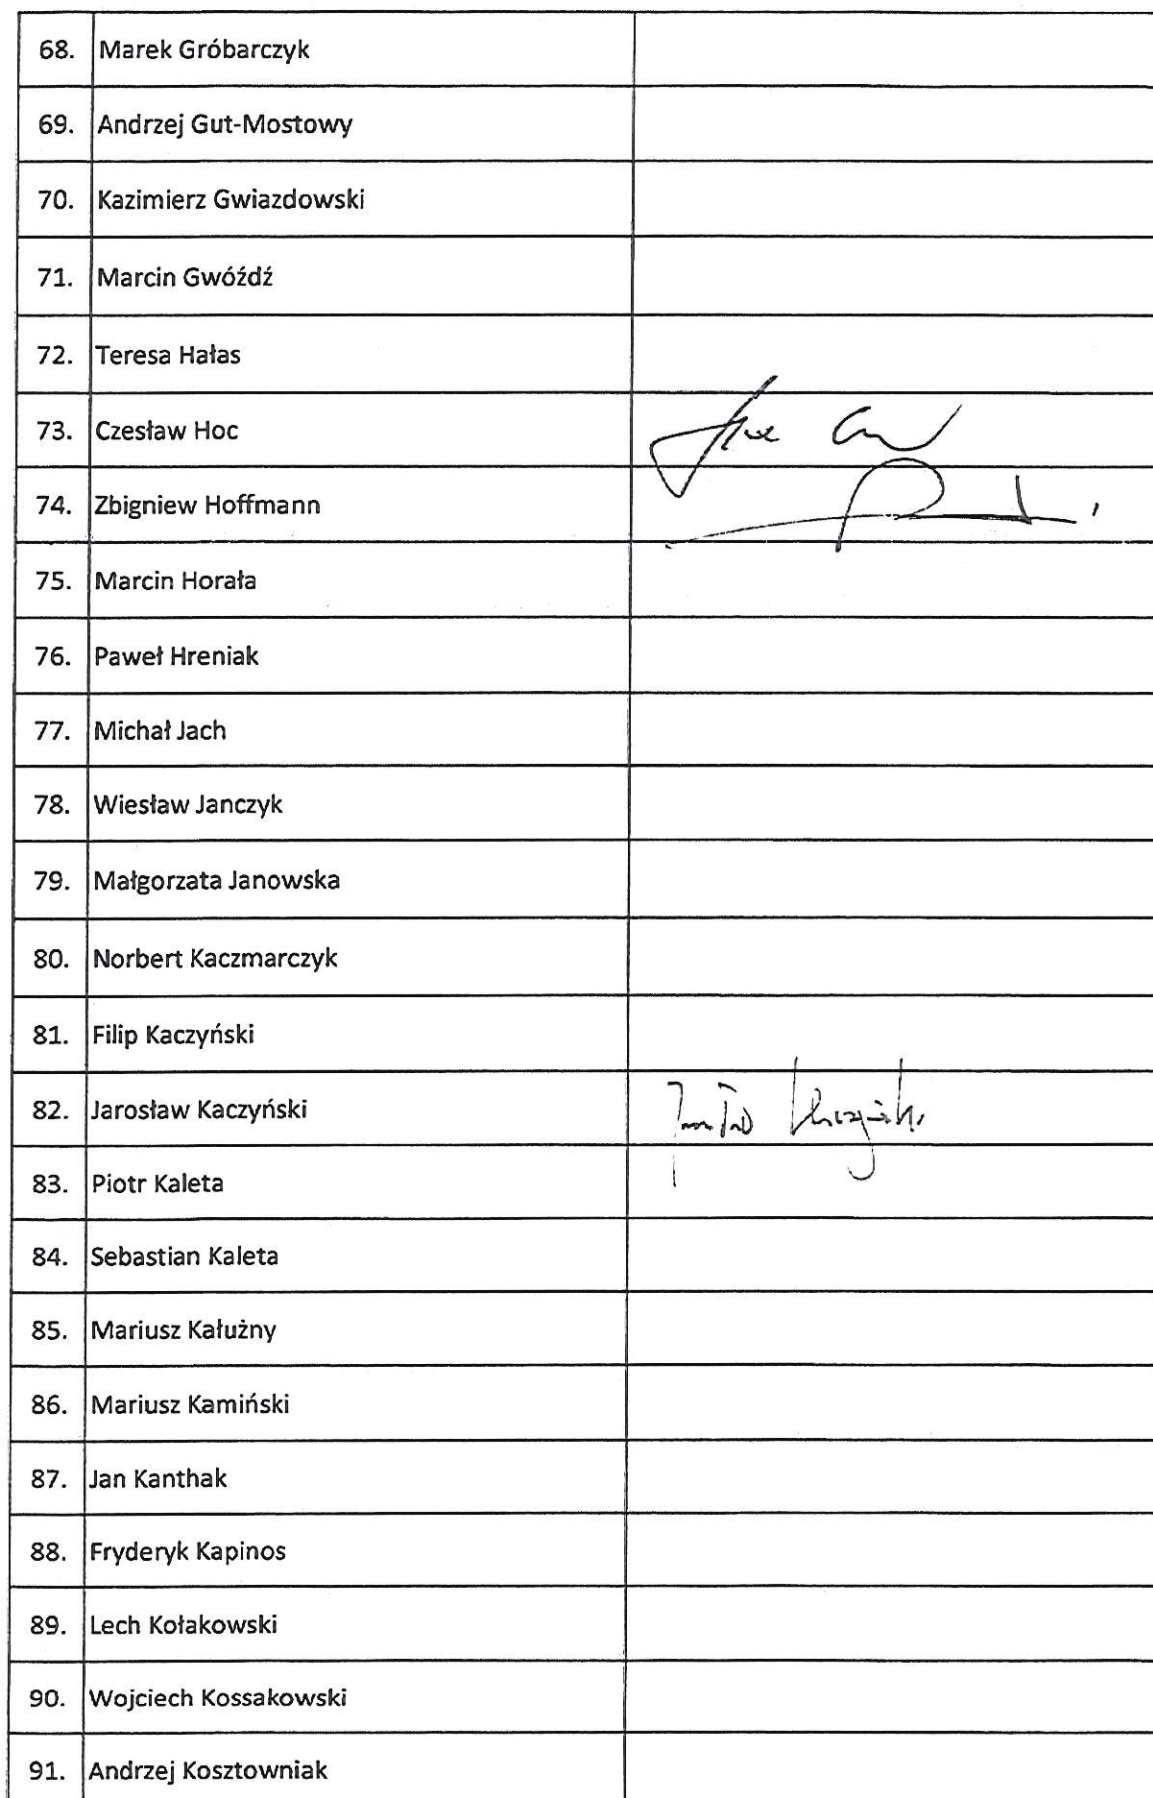 68. Marek Gróbarczyk
69. Andrzej Gut-Mostowy
70. Kazimierz Gwiazdowski
71. Marcin Gwóźdź
72. Teresa Hałas
73. Czesław Hoc
74. Zbigniew Hoffmann
75. Marcin Horała
76. Paweł Hreniak
77. Michał Jach
78. Wiesław Janczyk
79. Małgorzata Janowska
80. Norbert Kaczmarczyk
81. Filip Kaczyński
82. Jarosław Kaczyński
83. Piotr Kaleta
84. Sebastian Kaleta
85. Mariusz Kałużny
86. Mariusz Kamiński
87. Jan Kanthak
88. Fryderyk Kapinos
89. Lech Kołakowski
90. Wojciech Kossakowski
91. Andrzej Kosztowniak